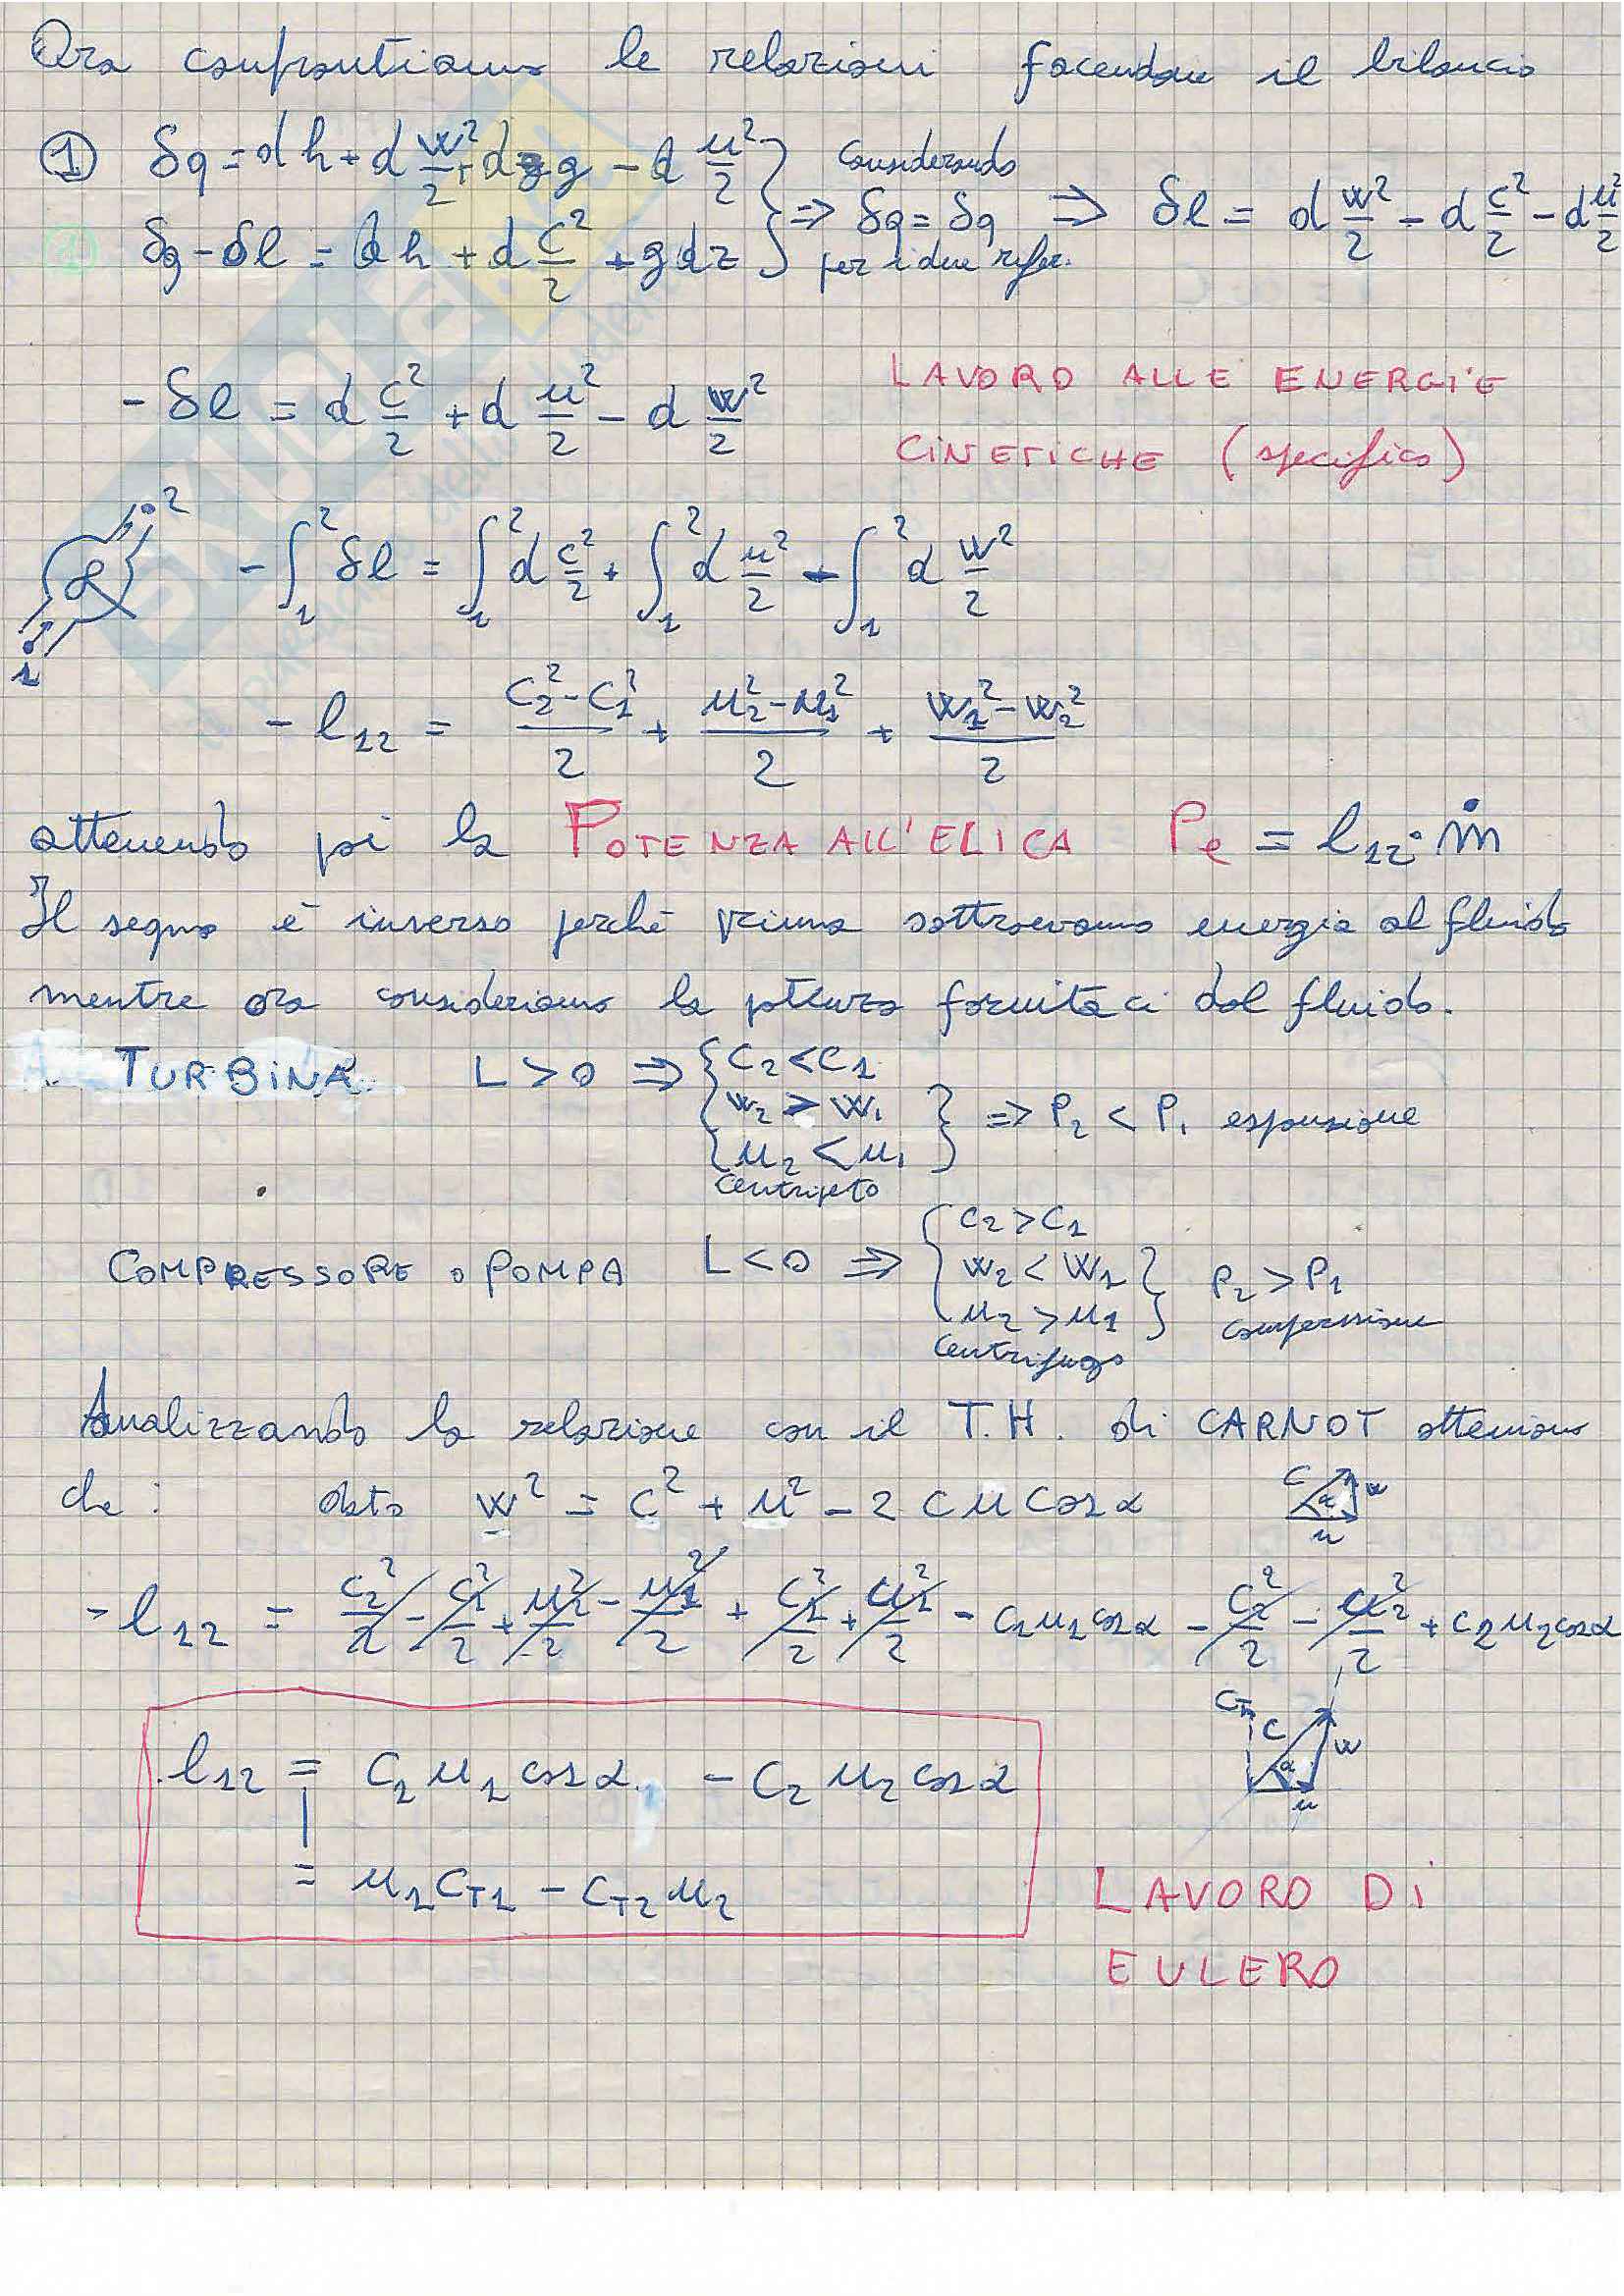 Ora confrontiamo le relazioni facendone il bilancio
① δq = dh + d w²/2 + dz g - d u²/2 } considerando
② δq - δl = dh + d c²/2 + g dz } ⇒ δq = δq ⇒ δl = d w²/2 - d c²/2 - d u²/2
per i due rifer.
- δl = d c²/2 + d u²/2 - d w²/2 LAVORO ALLE ENERGIE
CINETICHE (specifico)
2
L
1
- ∫₁² δl = ∫₁² d c²/2 + ∫₁² d u²/2 - ∫₁² d w²/2
- l₁₂ = (c₂² - c₁²)/2 + (u₂² - u₁²)/2 + (w₁² - w₂²)/2
ottenendo poi la POTENZA ALL'ELICA Pe = l₁₂ · ṁ
Il segno è inverso perché prima sottraevamo energia al fluido
mentre ora consideriamo la potenza fornitaci dal fluido.
TURBINA L > 0 ⇒ { c₂ < c₁
w₂ > w₁
u₂ < u₁ } ⇒ P₂ < P₁ espansione
centripeto
COMPRESSORE o POMPA L < 0 ⇒ { c₂ > c₁
w₂ < w₁
u₂ > u₁ } P₂ > P₁
compressione
centrifugo
Analizzando la relazione con il T.H. di CARNOT otteniamo
che: dato w² = c² + u² - 2 c u cos α
c α w u
- l₁₂ = c₂²/2 - c₁²/2 + u₂²/2 - u₁²/2 + c₁²/2 + u₁²/2 - c₁u₁cosα - c₂²/2 - u₂²/2 + c₂u₂cosα
c_T c α w u
l₁₂ = c₁ u₁ cos α - c₂ u₂ cos α
= u₁ c_T1 - c_T2 u₂ LAVORO DI
EULERO